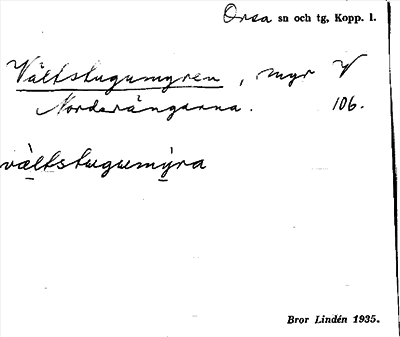 Orsa sn och tg, Kopp. l.
Vältstugumyren, myr V
Norderängarna. 106.
vältstugumýra
Bror Lindén 1935.